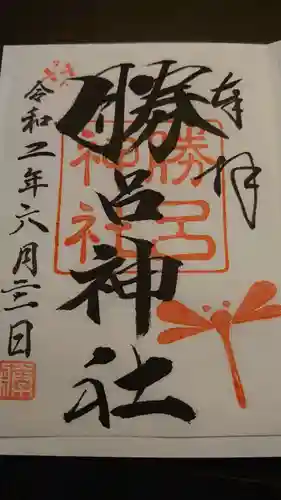 奉拝
勝呂神社
勝呂
神社
令和二年六月三日